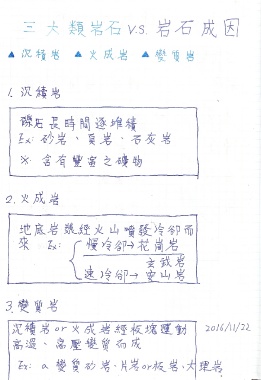 三大類岩石 v.s. 岩石成因
▲沉積岩 ▲火成岩 ▲變質岩
1. 沉積岩
礫石長時間逐堆積
Ex: 砂岩、頁岩、石灰岩
※ 含有豐富之礦物
2. 火成岩
地底岩漿經火山噴發冷卻而
來 Ex: 慢冷卻→花崗岩
玄武岩
速冷卻→安山岩
3. 變質岩
沉積岩or火成岩經板塊運動
高溫、高壓變質而成
2016/11/22
Ex: a 變質砂岩、片岩or板岩、大理岩